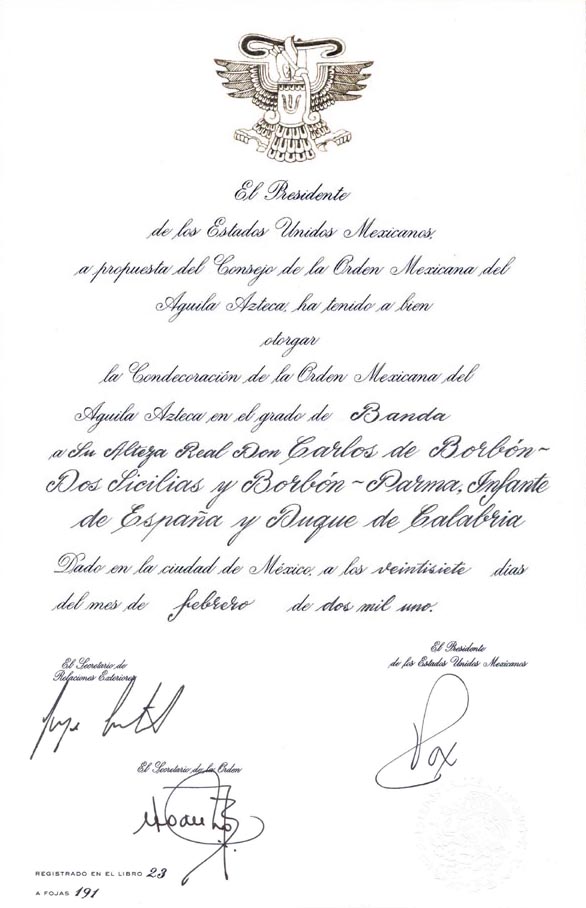 El Presidente
de los Estados Unidos Mexicanos,
a propuesta del Consejo de la Orden Mexicana del
Aguila Azteca, ha tenido a bien
otorgar
la Condecoración de la Orden Mexicana del
Aguila Azteca en el grado de Banda
a Su Alteza Real Don Carlos de Borbón-
Dos Sicilias y Borbón-Parma, Infante
de España y Duque de Calabria
Dado en la ciudad de México, a los veintisiete días
del mes de febrero de dos mil uno.
El Presidente
de los Estados Unidos Mexicanos
El Secretario de
Relaciones Exteriores
Fox
El Secretario de la Orden
REGISTRADO EN EL LIBRO 23
A FOJAS 191